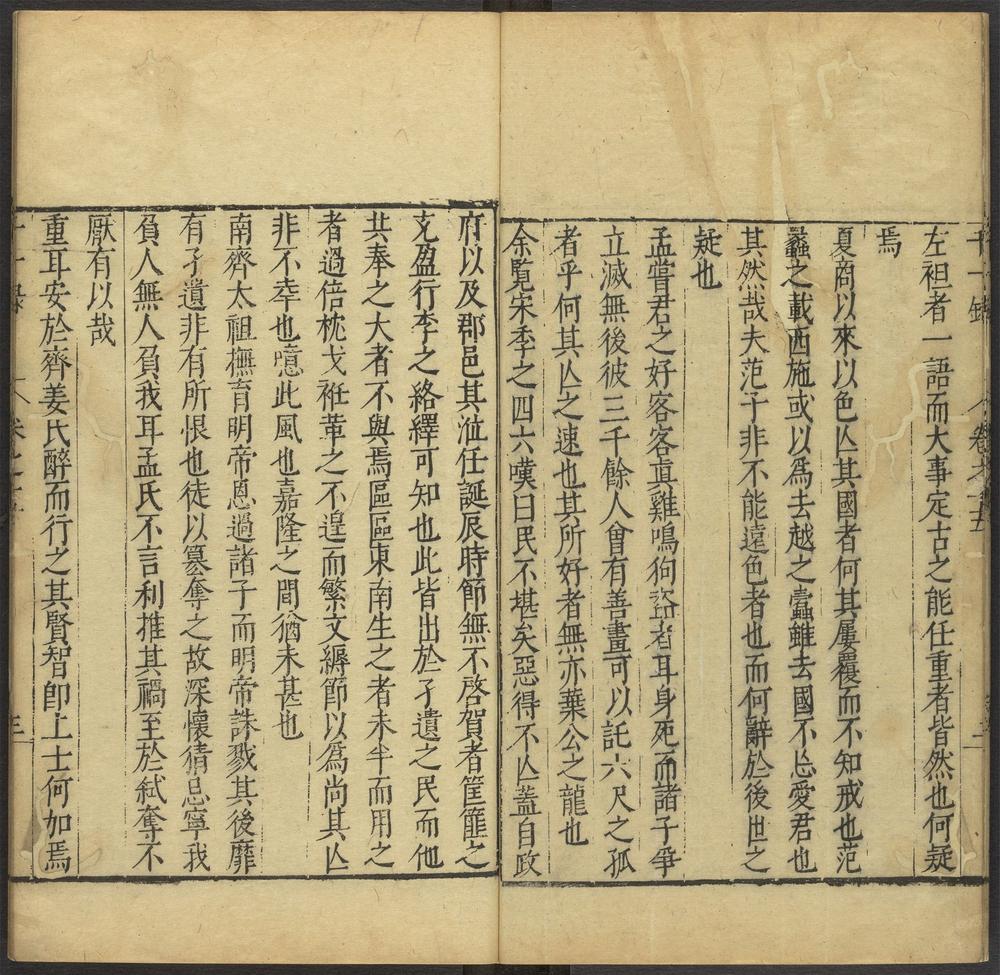 左袒者一語而大事定古之能任重者皆然也何疑
焉
夏商以來以色亾其國者何其屢覆而不知戒也范
蠡之載西施或以為去越之蠧雖去國不忘愛君也
其然哉夫范子非不能遠色者也而何辭於後世之
疑也
孟嘗君之好客客眞雞鳴狗盜者耳身死而諸子爭
立滅無後彼三千餘人曾有善畫可以託六尺之孤
者乎何其亾之速也其所好者無亦葉公之龍也
余覧宋季之四六嘆曰民不堪矣惡得不亾蓋自政
府以及郡邑其涖任誕辰時節無不啓賀者筐篚之
充盈行李之絡繹可知也此皆出於孑遺之民而他
共奉之大者不與焉區區東南生之者未半而用之
者過倍枕戈袵革之不遑而繁文縟節以爲尚其亾
非不幸也噫此風也嘉隆之間猶未甚也
南齊太祖撫育明帝恩過諸子而明帝誅戮其後靡
有孑遺非有所恨也徒以篡奪之故深懷猜忌寧我
負人無人負我耳孟氏不言利推其禍至於弒奪不
厭有以哉
重耳安於齊姜氏醉而行之其賢智卽上士何如焉